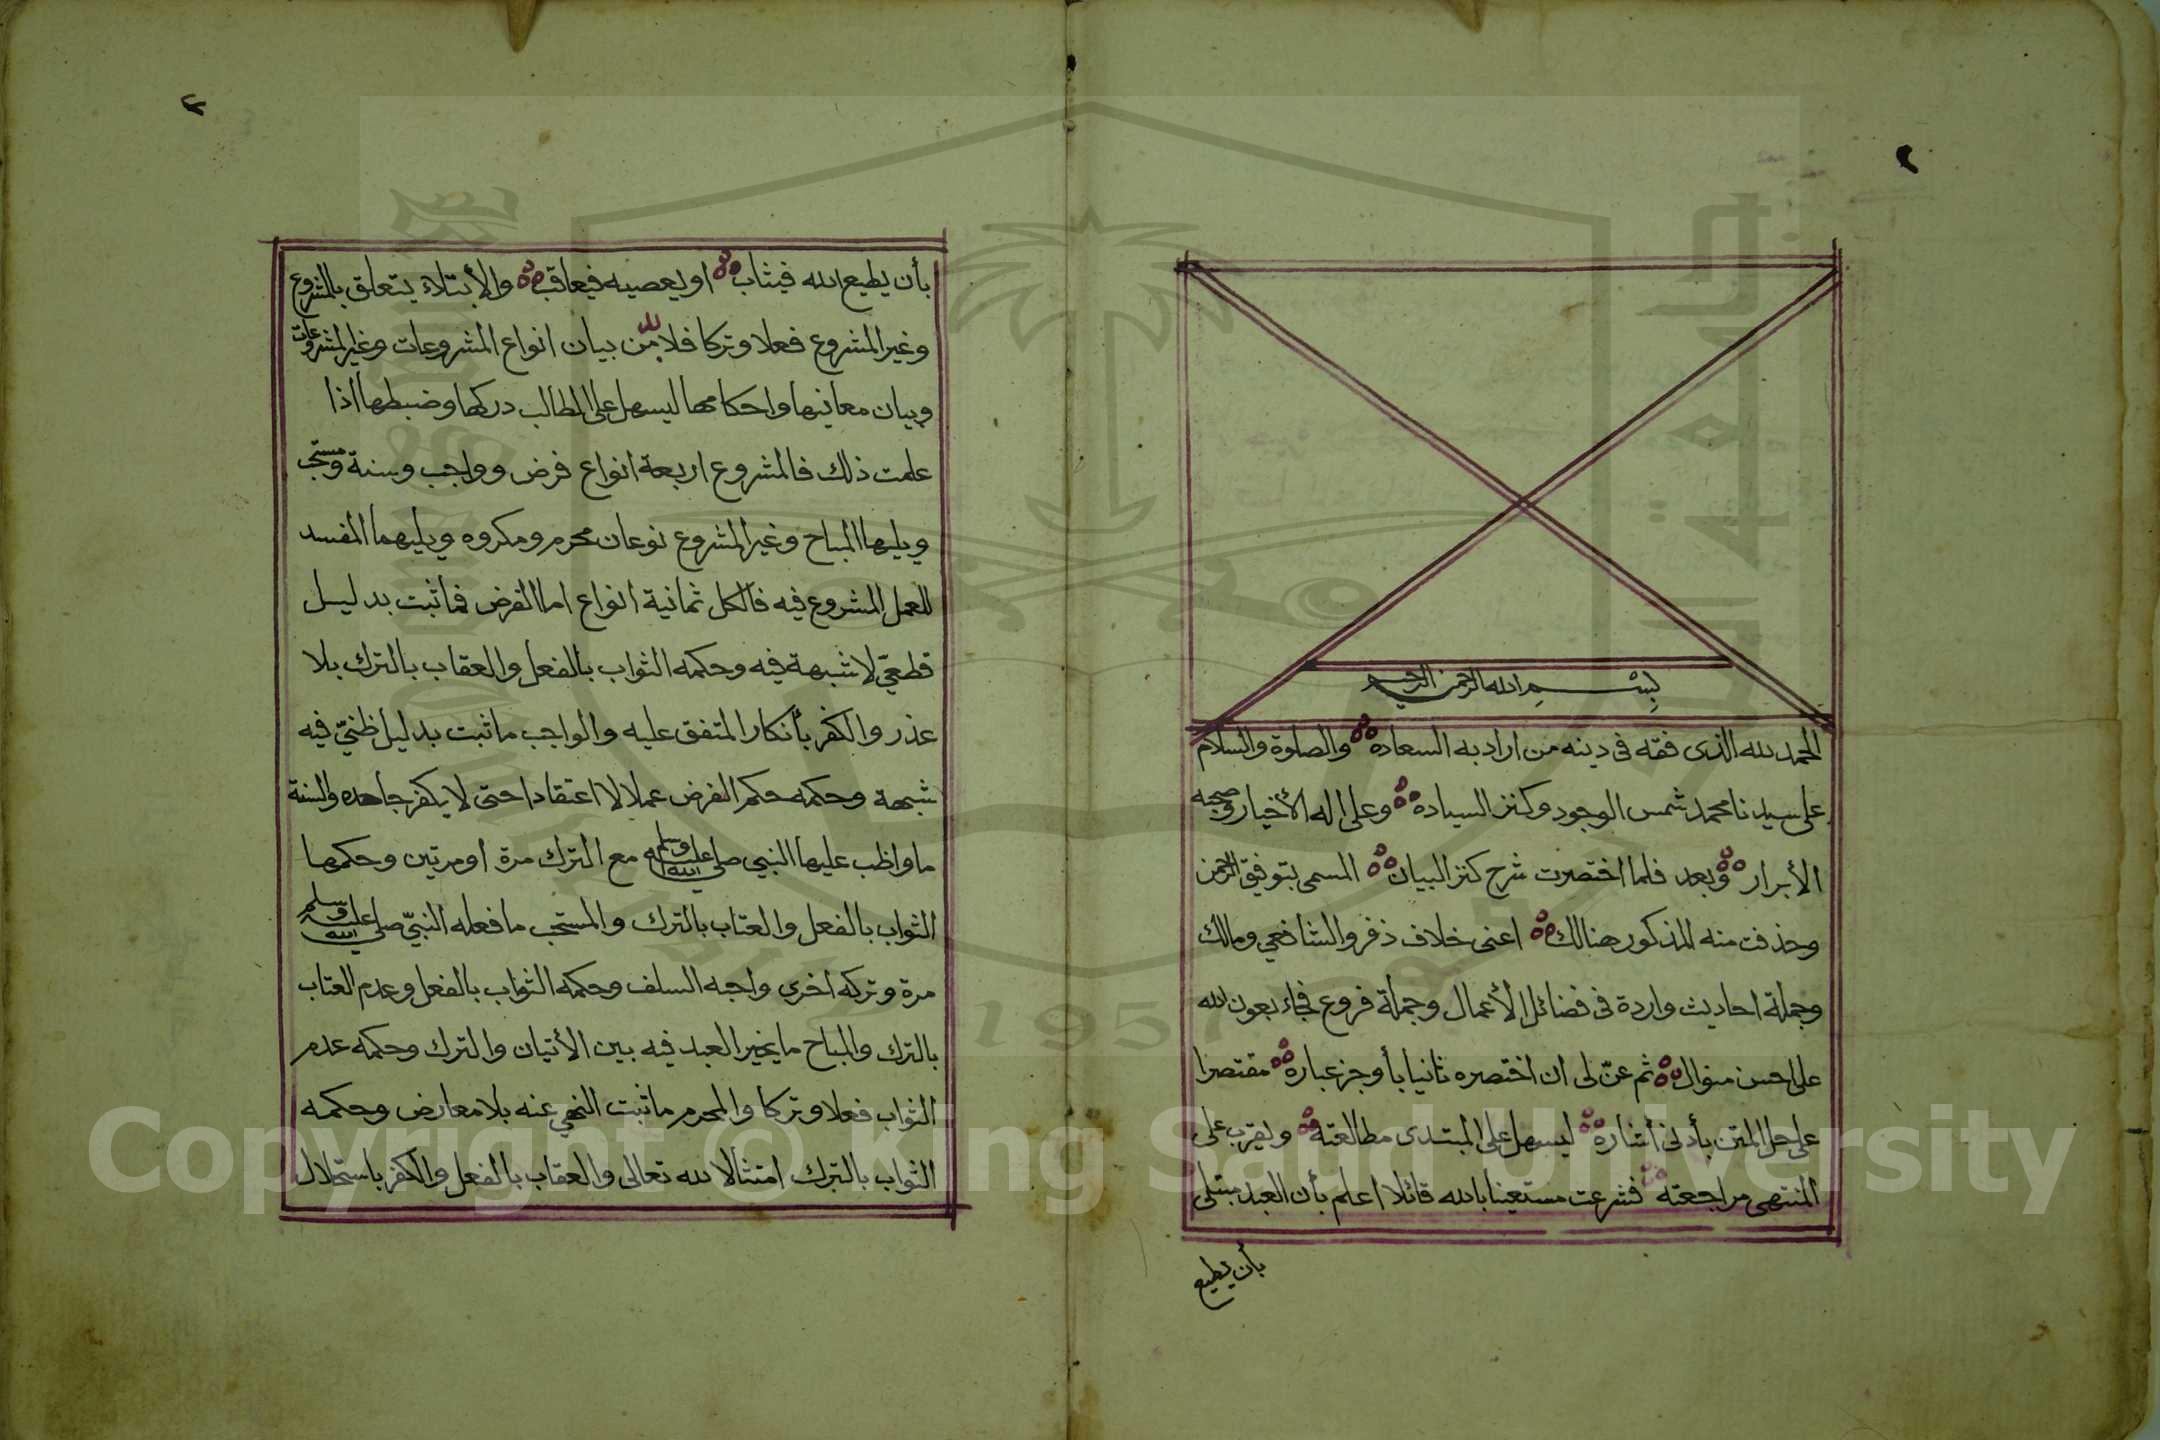 ٢
بسم الله الرحمن الرحيم
الحمد لله الذى فقه فى دينه من اراد به السعاده والصلوة والسلام
على سيدنا محمد شمس الوجود وكنز السياده وعلى اله الأخيار وصحبه
الأبرار وبعد فلما اختصرت شرح كنز البيان المسمى بتوفيق الرحمن
وحذفت منه المذكور هنالك اعنى خلاف ذفر والشافعي ومالك
وجملة احاديث واردة فى فضائل الأعمال وجملة فروع فجاء بعون الله
على احسن منوال ثم عنّ لى ان اختصره ثانيا بأوجز عباره مقتصرا
على حل المتن بأدنى أشاره ليسهل على المبتدى مطالعته ويقرب على
المنتهى مراجعته فشرعت مستعينا بالله قائلا اعلم بأن العبد مبتلى
بأن يطيع
٣
بأن يطيع الله فيثاب او يعصيه فيعاقب والأبتلاء يتعلق بالمشروع
وغير المشروع فعلا وتركا فلا بد من بيان انواع المشروعات وغير المشروعات
وبيان معانيها واحكامها ليسهل على الطالب دركها وضبطها أذا
علمت ذلك فالمشروع اربعة انواع فرض وواجب وسنة ومستحب
ويليها المباح وغير المشروع نوعان محرم ومكروه ويليهما المفسد
للعمل المشروع فيه فالكل ثمانية انواع اما الفرض فما ثبت بدليل
قطعيّ لا شبهة فيه وحكمه الثواب بالفعل والعقاب بالترك بلا
عذر والكفر بأنكار المتفق عليه والواجب ما ثبت بدليل ظنيّ فيه
شبهة وحكمه حكم الفرض عملا لا اعتقادا حتى لا يكفر جاهده والسنة
ما واظب عليها النبي صلى الله عليه وسلم مع الترك مرة او مرتين وحكمها
الثواب بالفعل والعتاب بالترك والمستحب ما فعله النبيّ صلى الله عليه وسلم
مرة وتركه اخرى واحبه السلف وحكمه الثواب بالفعل وعدم العتاب
بالترك والمباح ما يخير العبد فيه بين الأتيان والترك وحكمه عدم
الثواب فعلا وتركا والمحرم ما ثبت النهي عنه بلا معارض وحكمه
الثواب بالترك امتثالا لله تعالى والعقاب بالفعل والكفر باستحلال
Copyright © King Saud University
1957